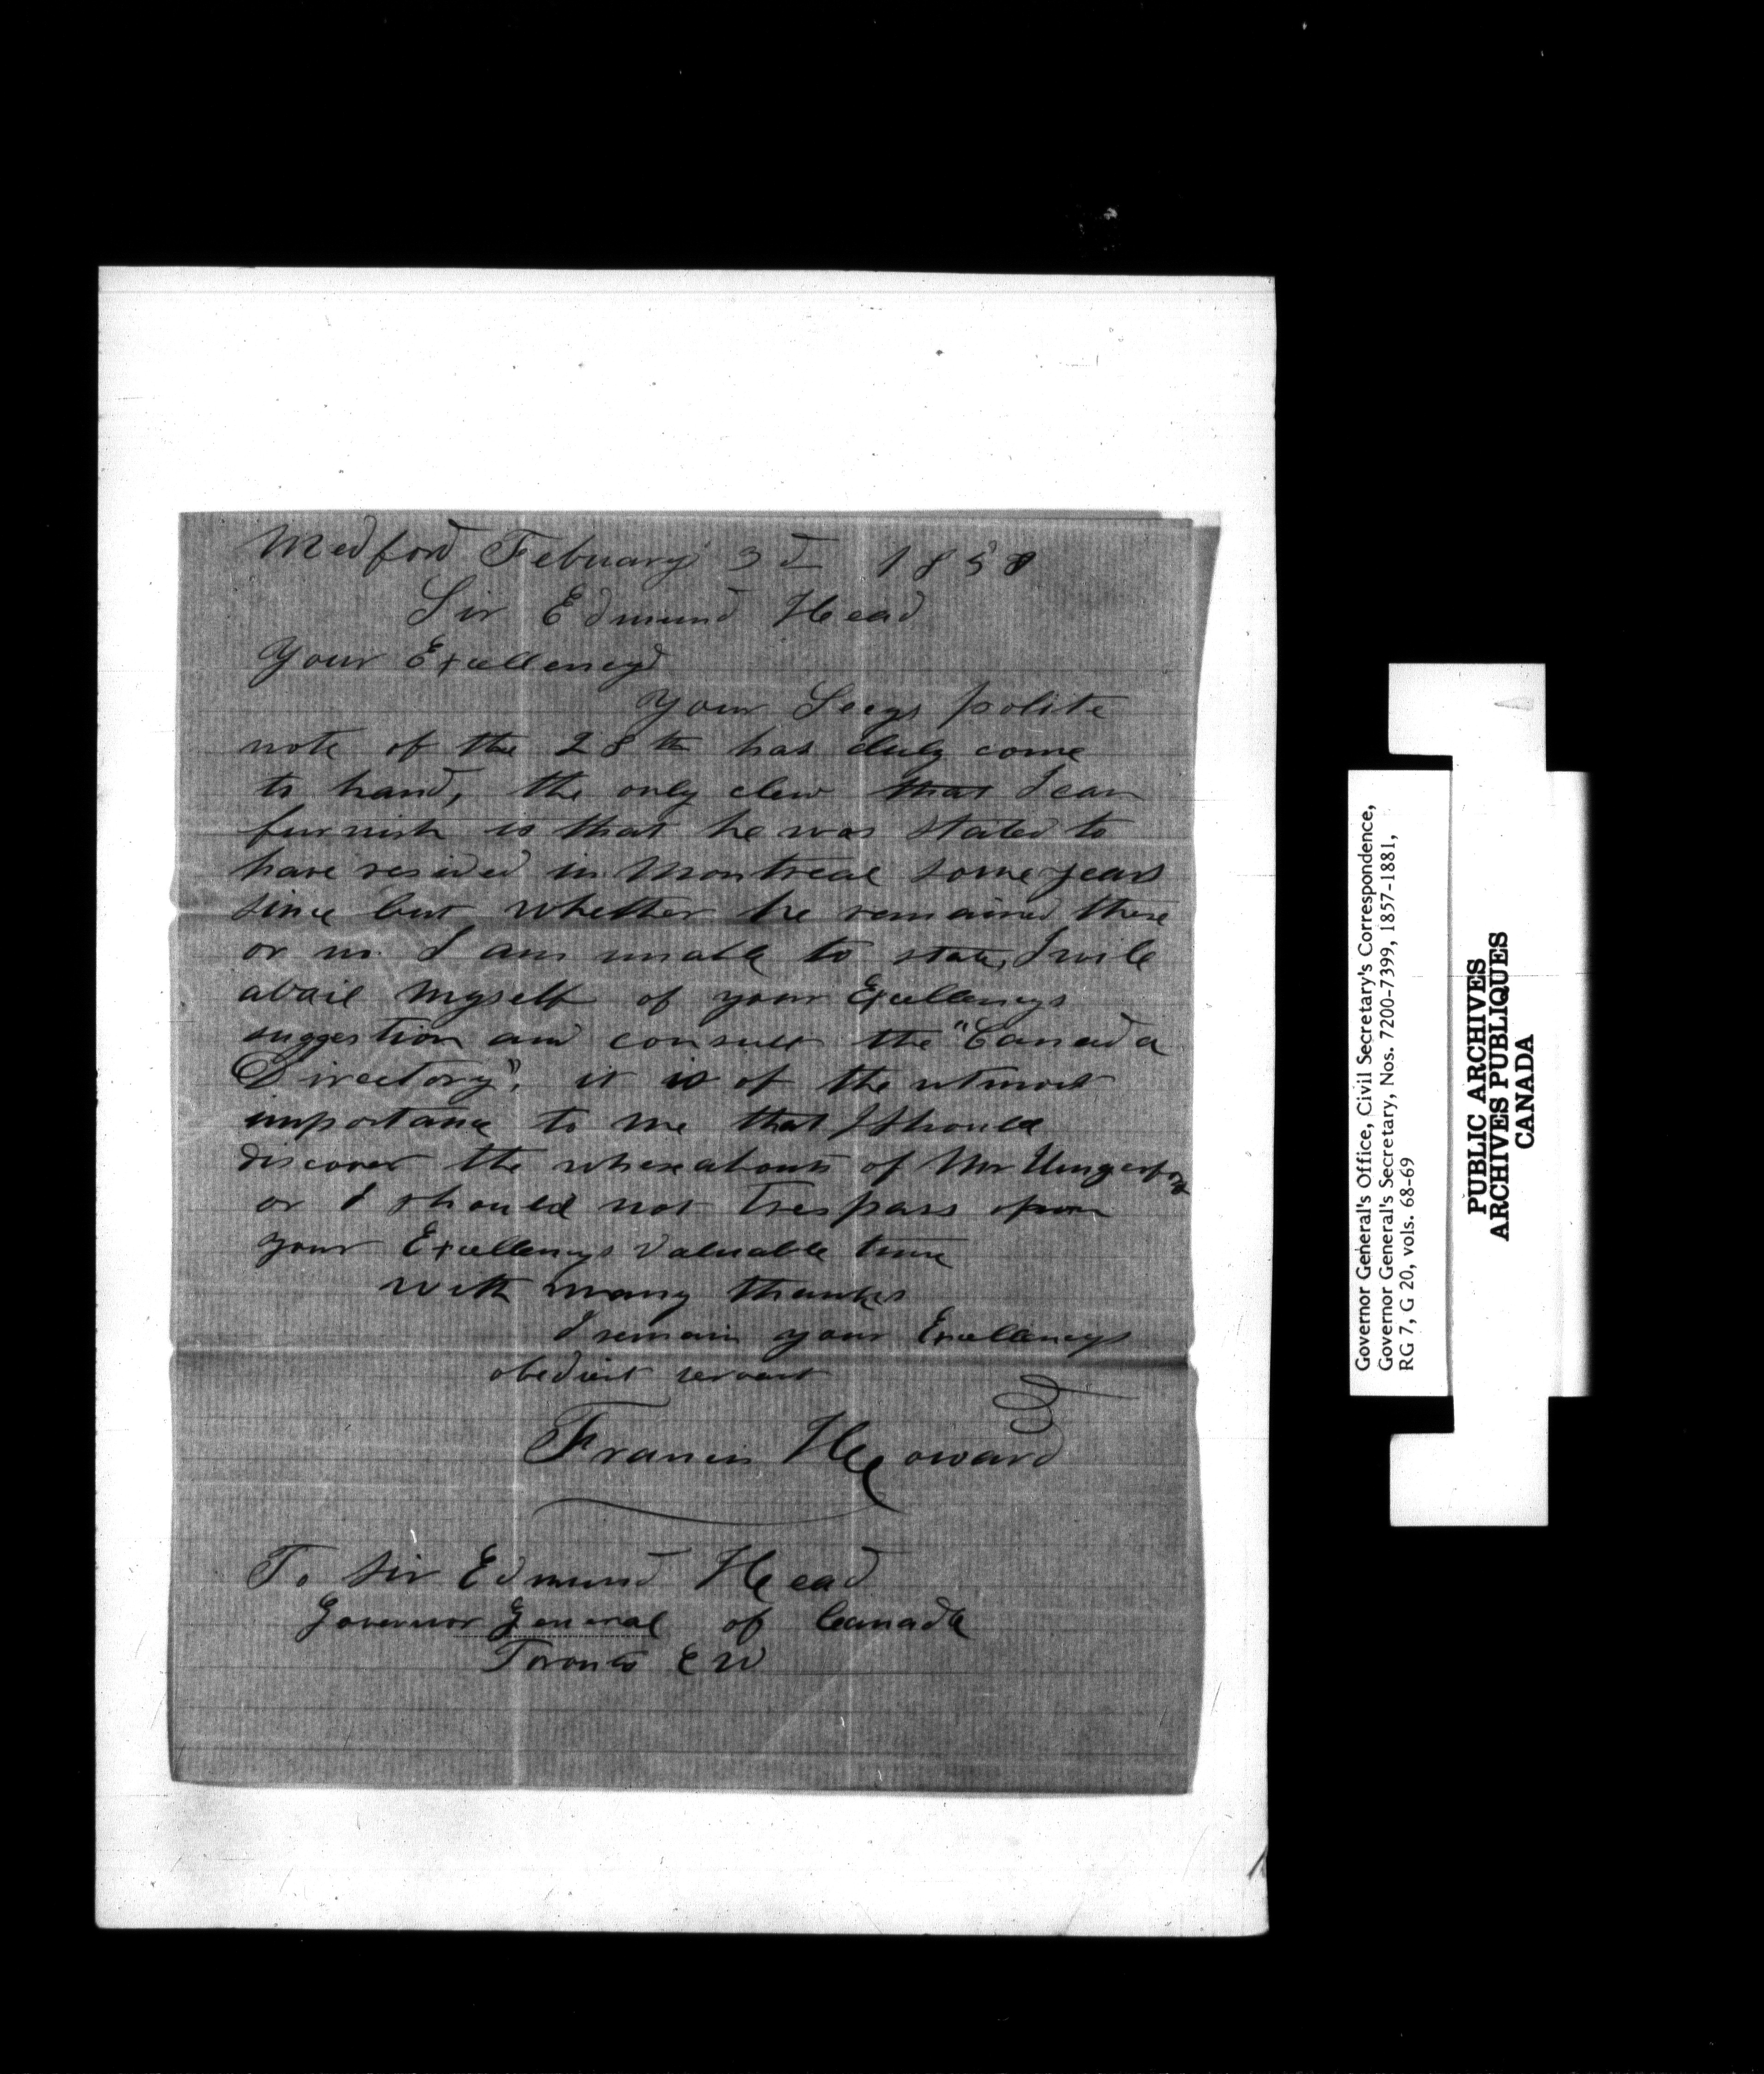 Medford Febuary 3d 1858
Sir Edmund Head
Your Excellency
Your Secys polite
note of the 28th has duly come
to hand, the only clew that I can
furnish is that he was stated to
have resided in Montreal some years
since but whether he remained there
or no I am unable to state, I will
avail myself of your Excellencys
suggestion and consult the "Canada
Directory", it is of the utmost
importance to me that I should
discover the whereabouts of Mr Ungerford
or I should not trespass upon
your Excellencys valuable time
with many thanks
I remain your Excellencys
obedient servant
Francis Howard
To Sir Edmund Head
Governor General of Canada
Toronto CW
Governor General's Office, Civil Secretary's Correspondence,
Governor General's Secretary, Nos. 7200-7399, 1857-1881,
RG 7, G 20, vols. 68-69
PUBLIC ARCHIVES
ARCHIVES PUBLIQUES
CANADA